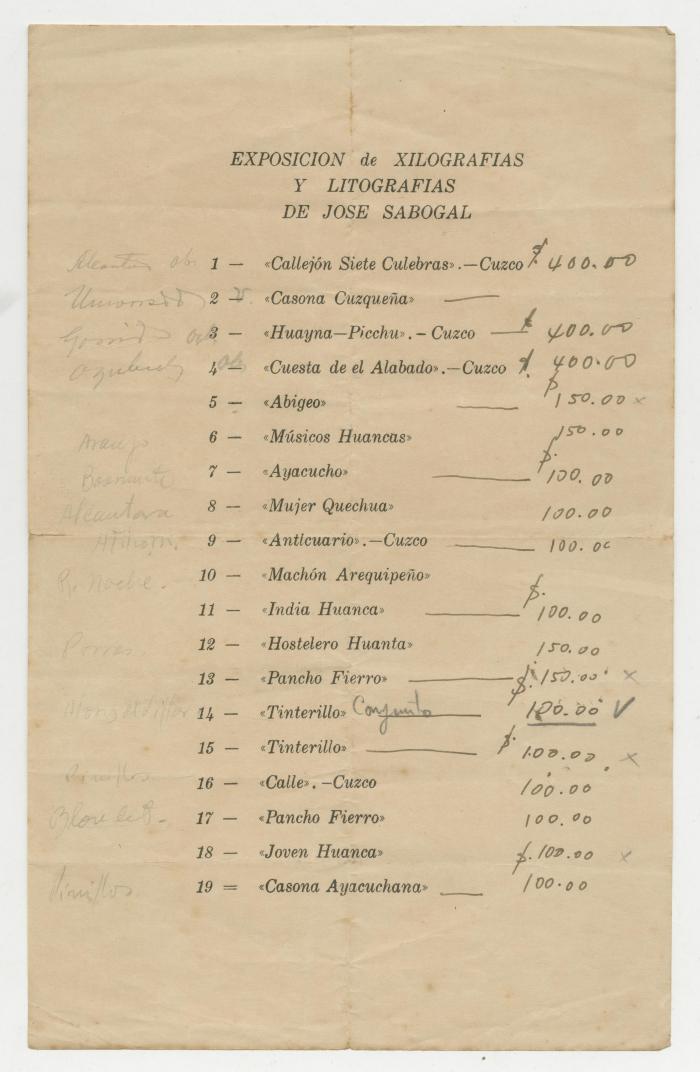 EXPOSICION de XILOGRAFIAS
Y LITOGRAFIAS
DE JOSE SABOGAL
1 — «Callejón Siete Culebras».—Cuzco $. 400.00
2 — «Casona Cuzqueña» —
3 — «Huayna—Picchu».—Cuzco — $ 400.00
4 — «Cuesta de el Alabado».—Cuzco $. 400.00
5 — «Abigeo» — $. 150.00 x
Araujo 6 — «Músicos Huancas» 150.00
7 — «Ayacucho» — $. 100.00
Alcantara 8 — «Mujer Quechua» 100.00
9 — «Anticuario».—Cuzco — 100.00
10 — «Machón Arequipeño»
11 — «India Huanca» — $. 100.00
Porras 12 — «Hostelero Huanta» 150.00
13 — «Pancho Fierro» — $. 150.00 x
14 — «Tinterillo» Conjunto — 100.00 V
15 — «Tinterillo» — $. 100.00 x
Pinillos 16 — «Calle».—Cuzco 100.00
17 — «Pancho Fierro» 100.00
18 — «Joven Huanca» $. 100.00 x
Pinillos 19 = «Casona Ayacuchana» — 100.00